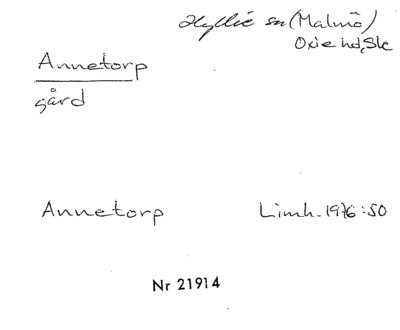 Hyllie sn (Malmö)
Oxie hd, Sk
Annetorp
gård
Annetorp Limh. 1976:50
Nr 21914